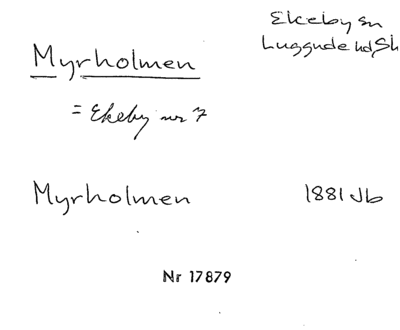 Ekeby sn
Luggude hd Sk
Myrholmen
= Ekeby nr 7
Myrholmen 1881 Jb
Nr 17879